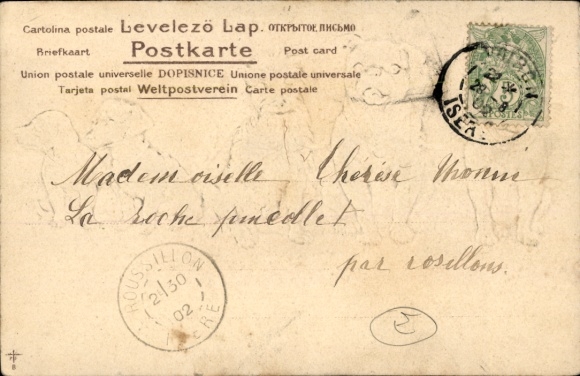 Cartolina postale Levelező Lap. ОТКРЫТОЕ ПИСЬМО
Briefkaart Postkarte Post card
Union postale universelle DOPISNICE Unione postale universale
Tarjeta postal Weltpostverein Carte postale
POSTES
ISERE
Mademoiselle Thérèse
La Roche
par rosillons.
ROUSSILLON
21 30
02
ISERE
8